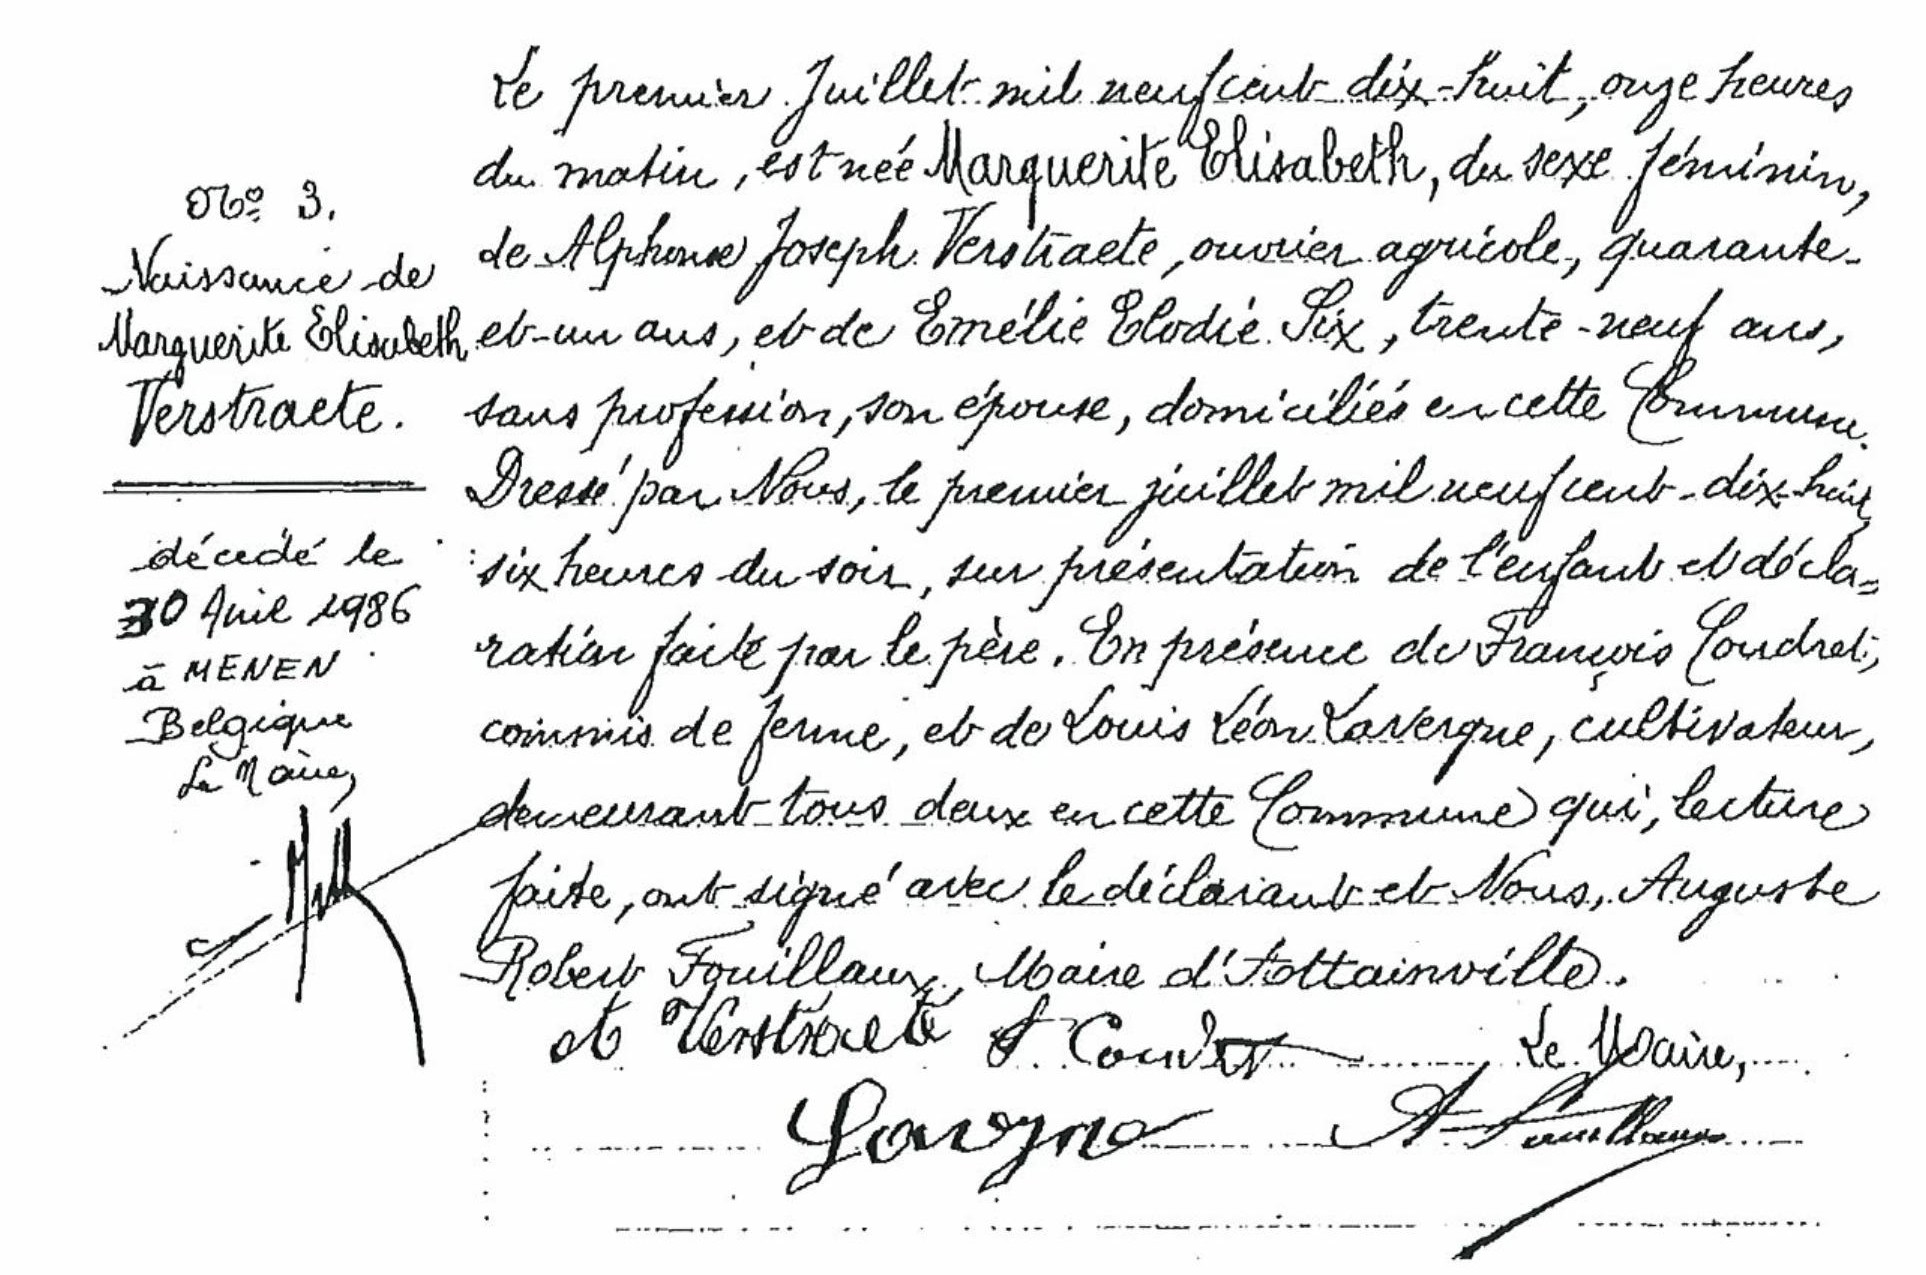 No 3.
Naissance de
Marguerite Elisabeth
Verstraete.
décédé le
30 Avril 1986
à MENEN
Belgique
Le Maire,
Le premier Juillet mil neuf cent dix-huit, onze heures
du matin, est née Marguerite Elisabeth, du sexe féminin,
de Alphonse Joseph Verstraete, ouvrier agricole, quarante-
et-un ans, et de Emélie Elodie Six, trente-neuf ans,
sans profession, son épouse, domiciliés en cette Commune.
Dressé par Nous, le premier juillet mil neuf cent-dix-huit,
six heures du soir, sur présentation de l'enfant et décla=
ration faite par le père. En présence de François Coudret,
commis de ferme, et de Louis Léon Lavergne, cultivateur,
demeurant tous deux en cette Commune qui, lecture
faite, ont signé avec le déclarant et Nous, Auguste
Robert Fouillaux, Maire d'Attainville.
Verstraete
Le Maire,